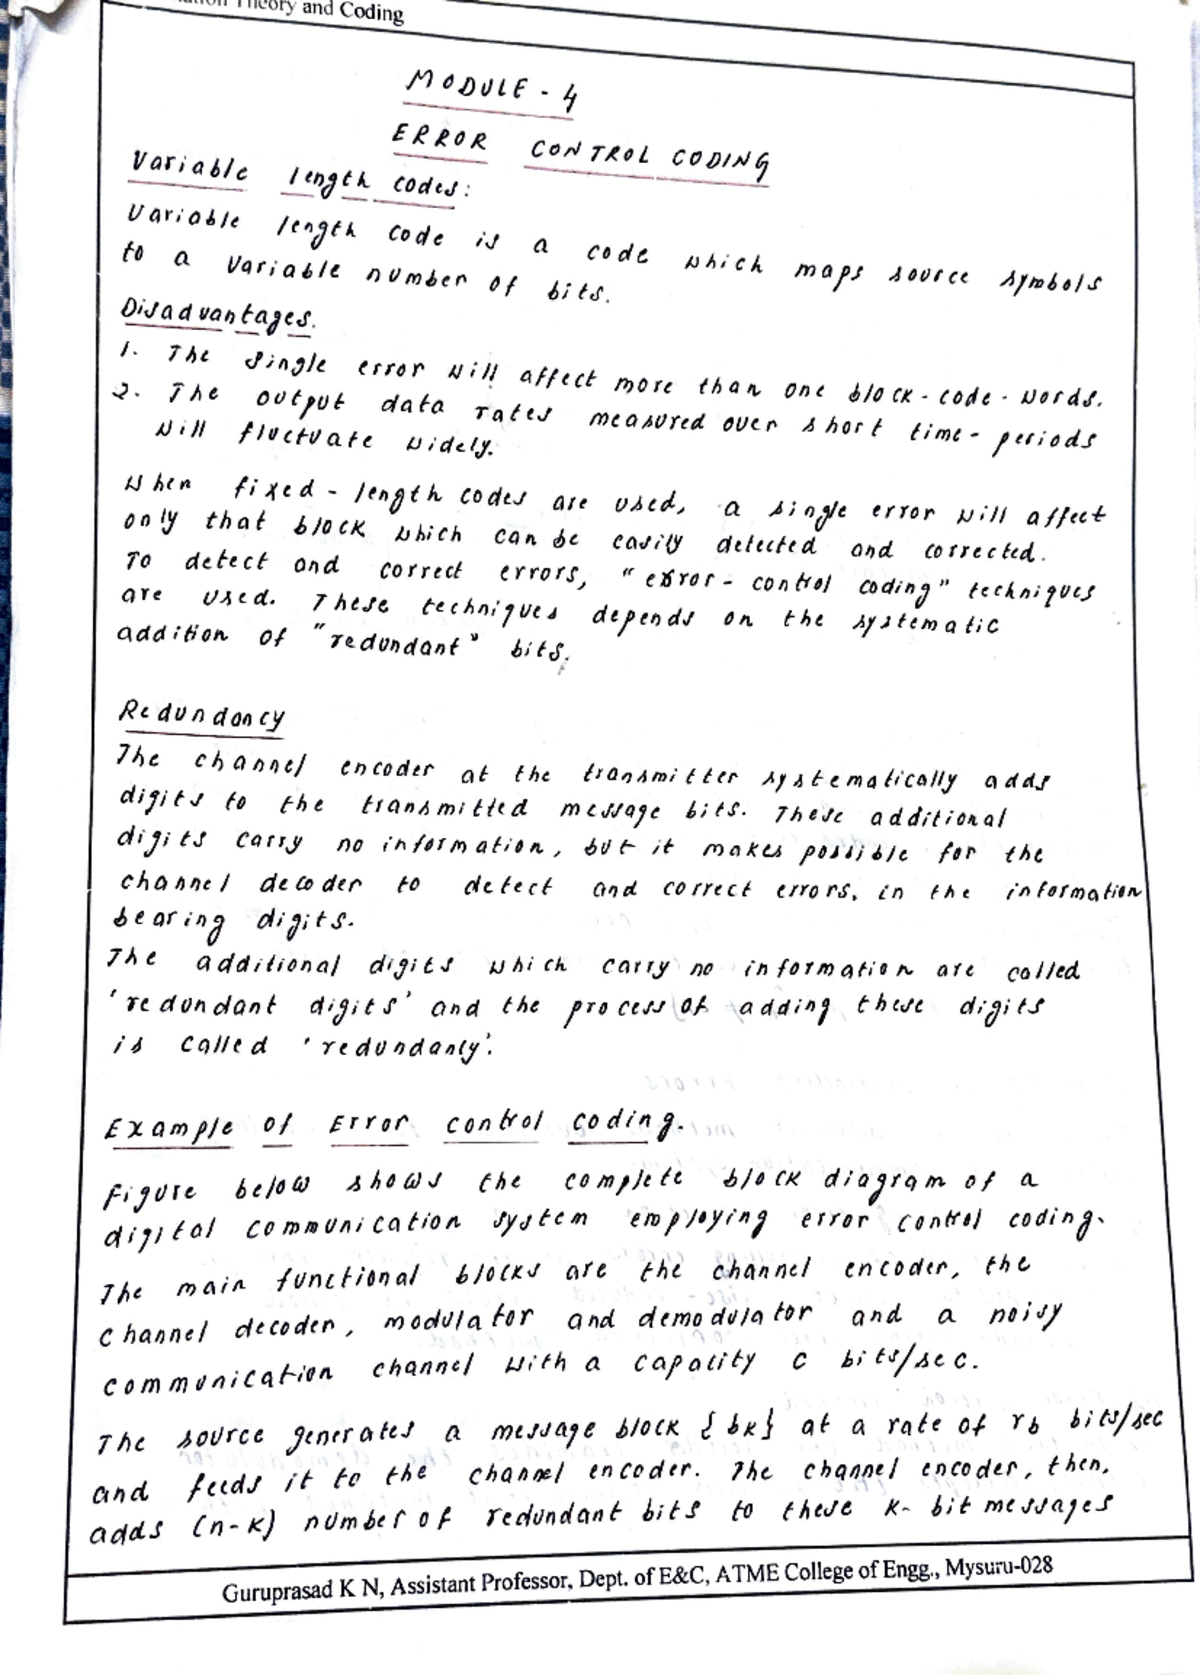 Theory and Coding
MODULE - 4
ERROR CONTROL CODING
Variable length codes:
Variable length code is a code which maps source symbols
to a variable number of bits.
Disadvantages.
1. The single error will affect more than one block-code-words.
2. The output data rates measured over short time-periods
will fluctuate widely.
When fixed-length codes are used, a single error will affect
only that block which can be easily detected and corrected.
To detect and correct errors, "error-control coding" techniques
are used. These techniques depends on the systematic
addition of "redundant" bits.
Redundancy
The channel encoder at the transmitter systematically adds
digits to the transmitted message bits. These additional
digits carry no information, but it makes possible for the
channel decoder to detect and correct errors, in the information
bearing digits.
The additional digits which carry no information are called
'redundant digits' and the process of adding these digits
is called 'redundancy'.
Example of Error control coding.
Figure below shows the complete block diagram of a
digital communication system employing error control coding.
The main functional blocks are the channel encoder, the
channel decoder, modulator and demodulator and a noisy
communication channel with a capacity C bits/sec.
The source generates a message block {bk} at a rate of rb bits/sec
and feeds it to the channel encoder. The channel encoder, then,
adds (n-k) number of redundant bits to these k-bit messages
Guruprasad K N, Assistant Professor, Dept. of E&C, ATME College of Engg., Mysuru-028